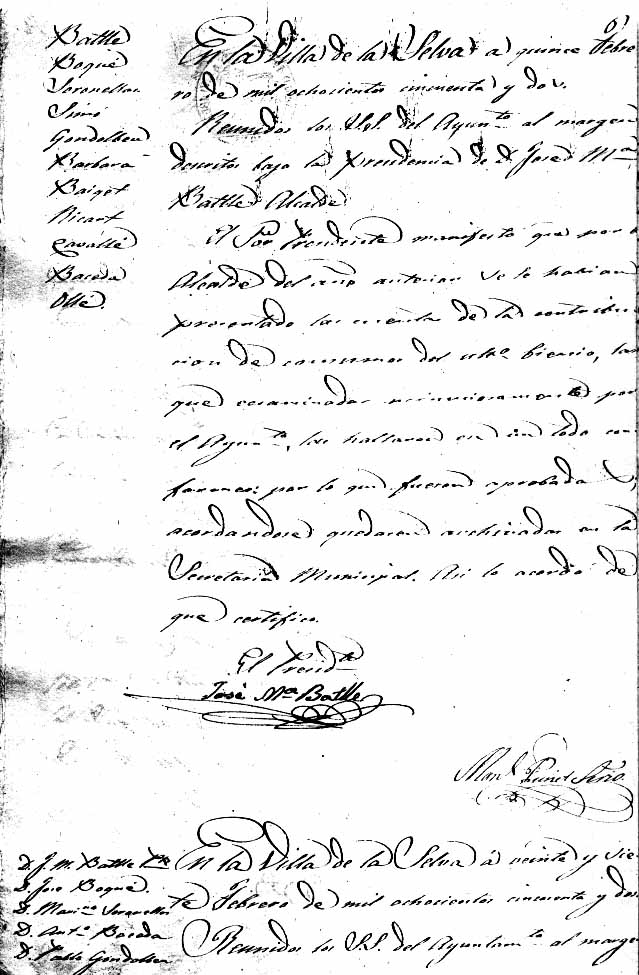 6
Batlle
Boqué
Simó
Gondolbeu
Barbará
Baiget
Ricart
Cavallé
Baceda
Ollé.
En la Villa de la Selva a quince Febre
ro de mil ochocientos cincuenta y dos.
Reunidos los S.S. del Ayunto. al margen
descritos bajo la presidencia de D. José Ma.
Batlle Alcalde
El Sor. Presidente manifestó que por el
Alcalde del año anterior se le habian
presentado las cuentas de la contribu
cion de consumos del ulto. bienio, las
que ecsaminadas minuciosamente por
el Ayunto., las hallaron en un todo con
formes: por lo que fueron aprobadas
acordandose quedasen archivadas en la
Secretaria Municipal. Asi lo acordó de
que certifico.
El Presidte
José Ma. Batlle
Manl. Srio.
D. J. M. Batlle
D. José Boqué.
D. Marino.
D. Anto. Baceda
D. Pablo Gondolbeu
En la Villa de la Selva á veinte y sie
te Febrero de mil ochocientos cincuenta y dos
Reunidos los S.S. del Ayuntamto. al margen